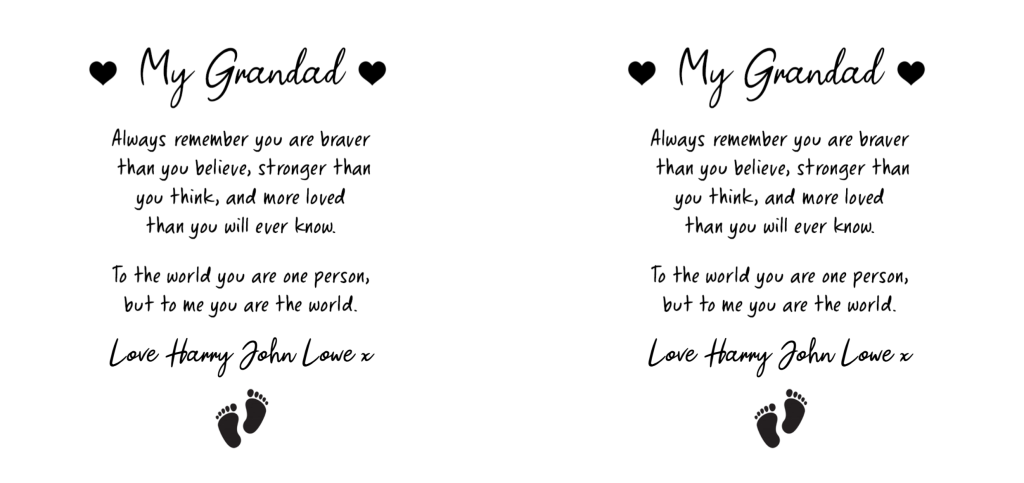 My Grandad
Always remember you are braver
than you believe, stronger than
you think, and more loved
than you will ever know.
To the world you are one person,
but to me you are the world.
Love Harry John Lowe x
My Grandad
Always remember you are braver
than you believe, stronger than
you think, and more loved
than you will ever know.
To the world you are one person,
but to me you are the world.
Love Harry John Lowe x